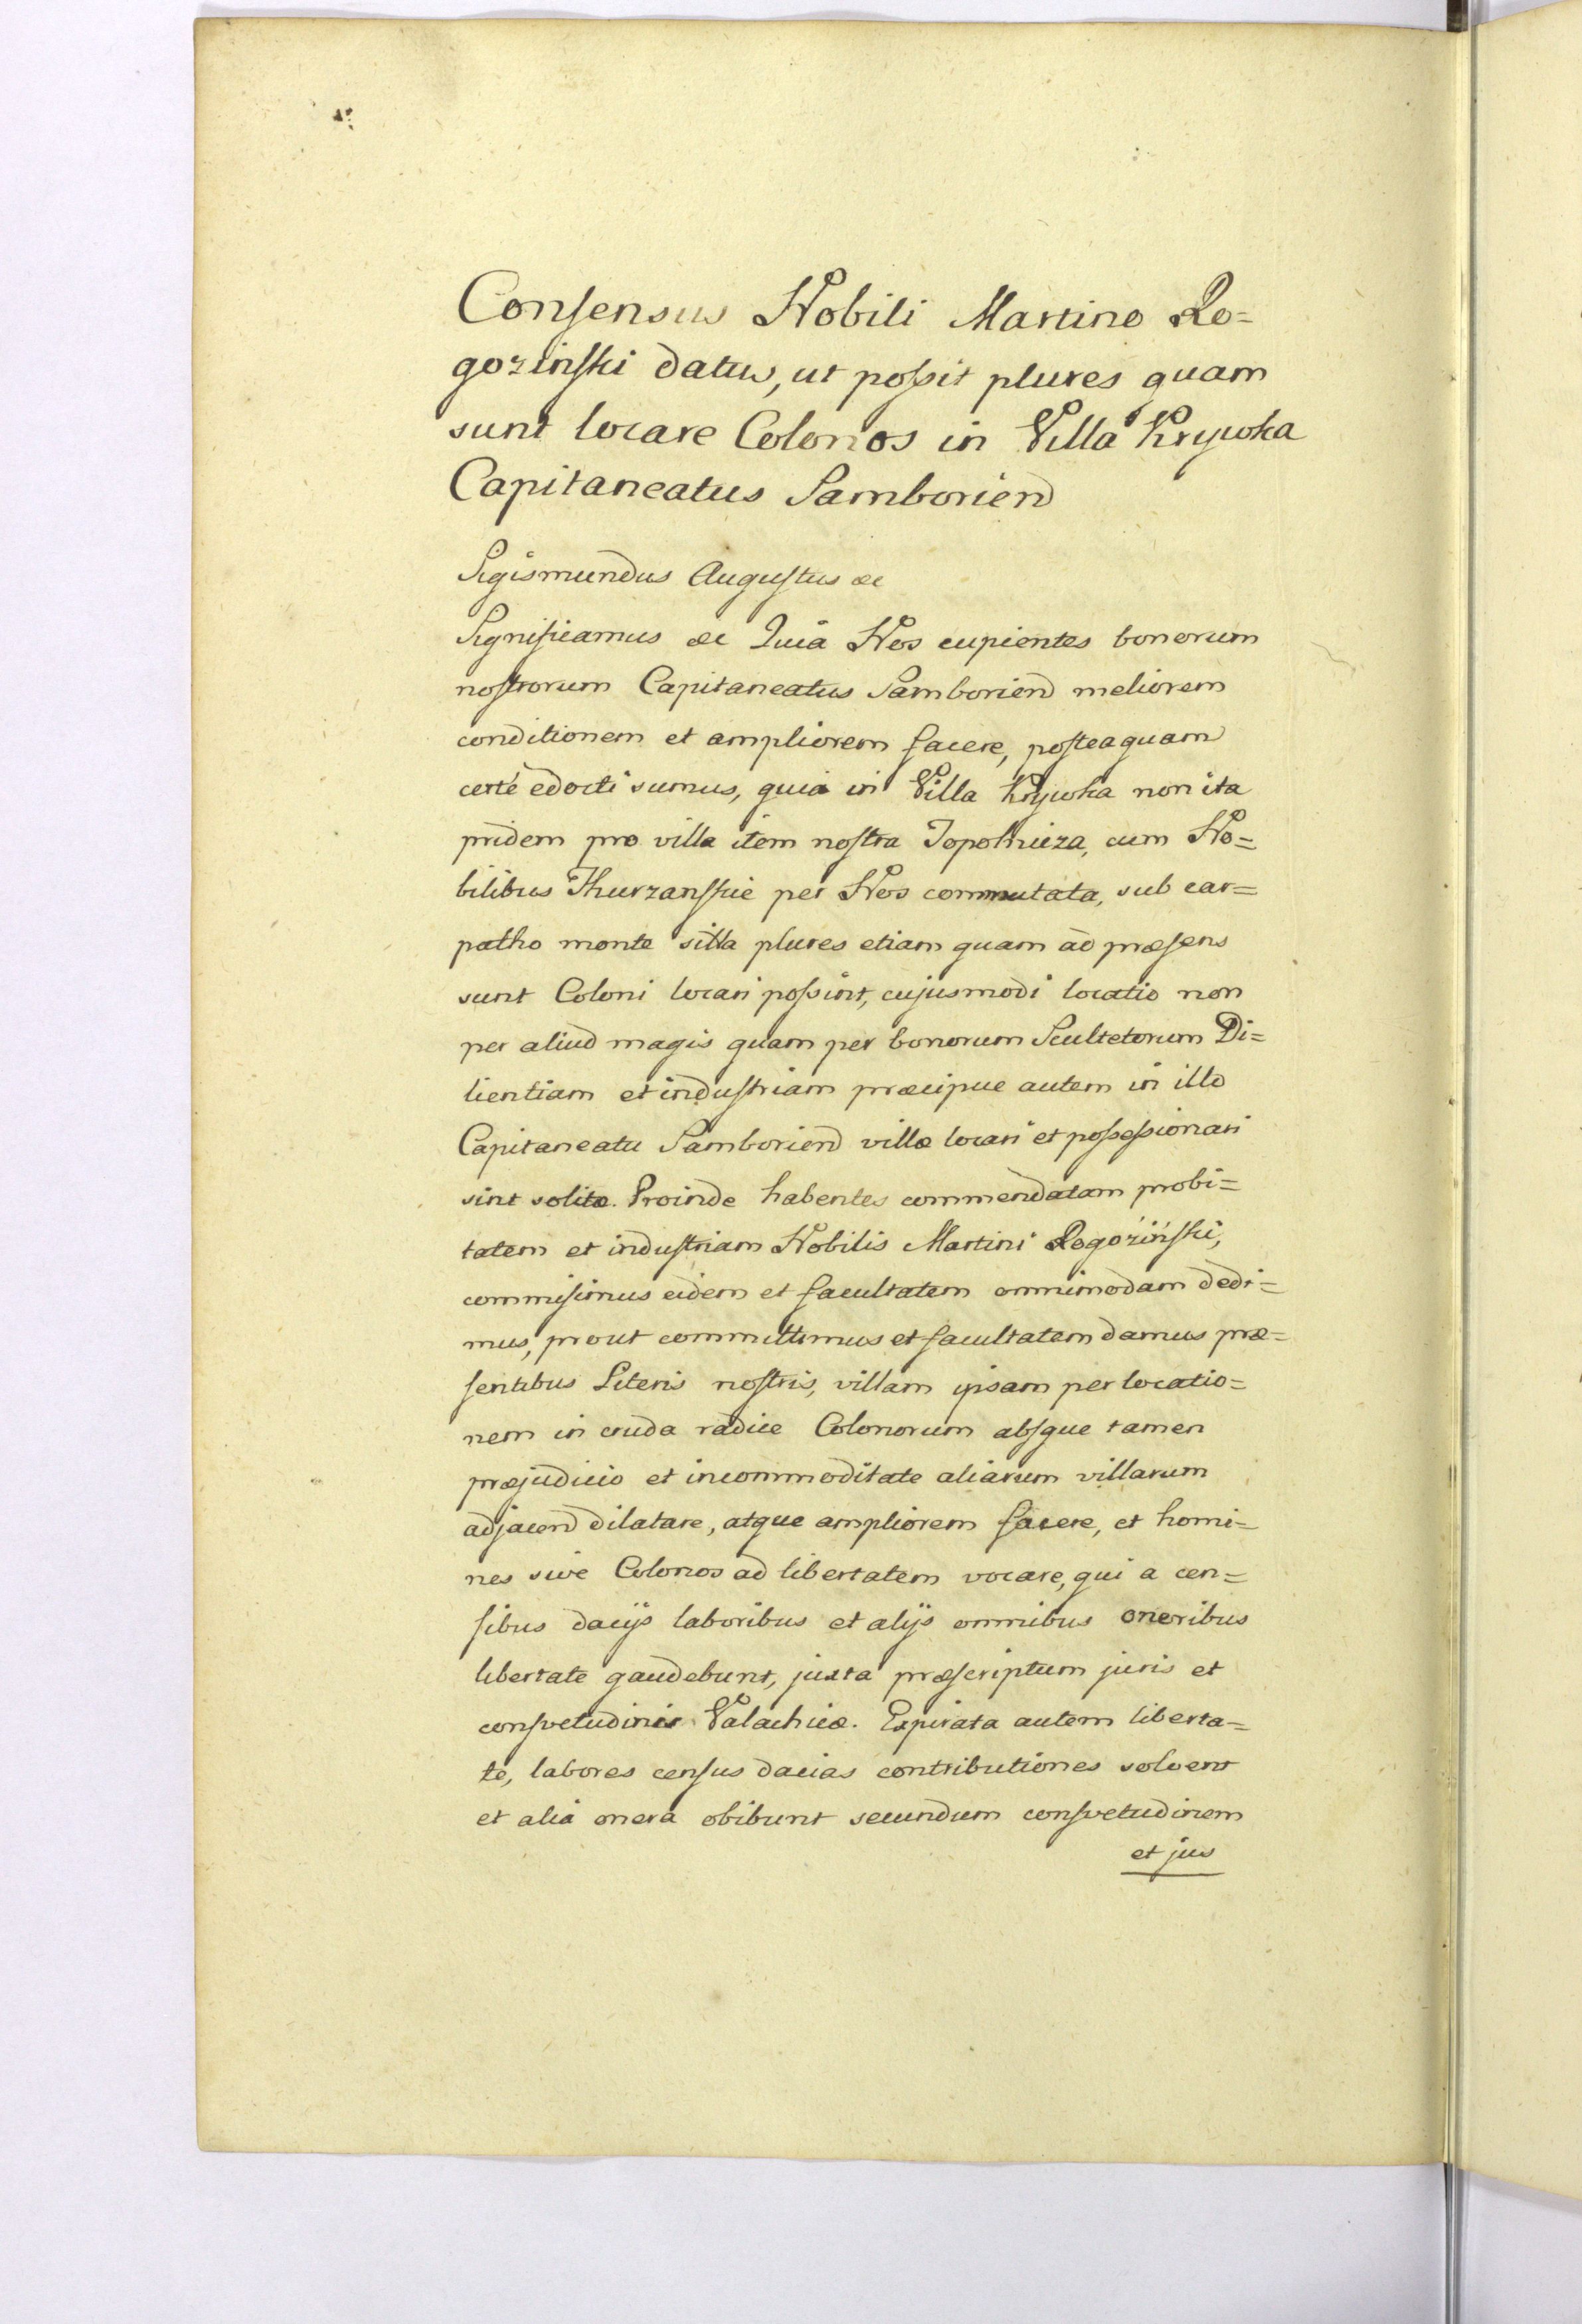 Consensus Nobili Martino Ro=
gozinski datus, ut possit plures quam
sunt locare Colonos in Villa Krywka
Capitaneatus Samboriend
Sigismundus Augustus &c
Significamus &c Quia Nos cupientes bonorum
nostrorum Capitaneatus Samboriend meliorem
conditionem et ampliorem facere, posteaquam
certé edocti sumus, quia in Villa Krywka non ita
pridem pro villa item nostra Topolnicza, cum No=
bilibus Thurzanskie per Nos commutata, sub car=
patho monte sitta plures etiam quam ad præsens
sunt Coloni locari possint, cujusmodi locatio non
per aliud magis quam per bonorum Scultetorum Di=
lientiam et industriam præcipue autem in illo
Capitaneatu Samboriend villæ locari et possessionari
sint solitæ. Proinde habentes commendatam probi=
tatem et industriam Nobilis Martini Rogoziński,
commisimus eidem et facultatem omnimodam dedi=
mus, prout committimus et facultatem damus præ=
sentibus Literis nostris, villam ipsam per locatio=
nem in cruda radice Colonorum absque tamen
præjudicio et incommoditate aliarum villarum
adjacend dilatare, atque ampliorem facere, et homi=
nes sive Colonos ad libertatem vocare, qui a cen=
sibus dacijs laboribus et alijs omnibus oneribus
libertate gaudebunt, juxta præscriptum juris et
consvetudinis Valachicæ. Expirata autem liberta=
te, labores census dacias contributiones solvent
et alia onera obibunt secundum consvetudinem
et jus